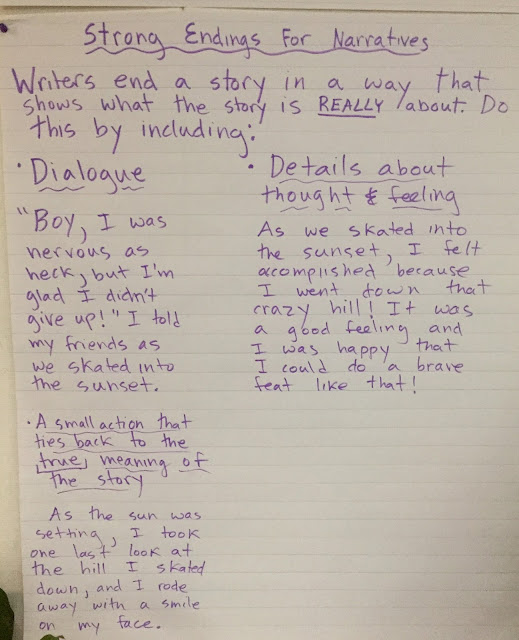 Strong Endings For Narratives
Writers end a story in a way that
shows what the story is REALLY about. Do
this by including:
• Dialogue
"Boy, I was
nervous as
heck, but I'm
glad I didn't
give up!" I told
my friends as
we skated into
the sunset.
• Details about
thought & feeling
As we skated into
the sunset, I felt
accomplished because
I went down that
crazy hill! It was
a good feeling and
I was happy that
I could do a brave
feat like that!
• A small action that
ties back to the
true meaning of
the story
As the sun was
setting, I took
one last look at
the hill I skated
down, and I rode
away with a smile
on my face.